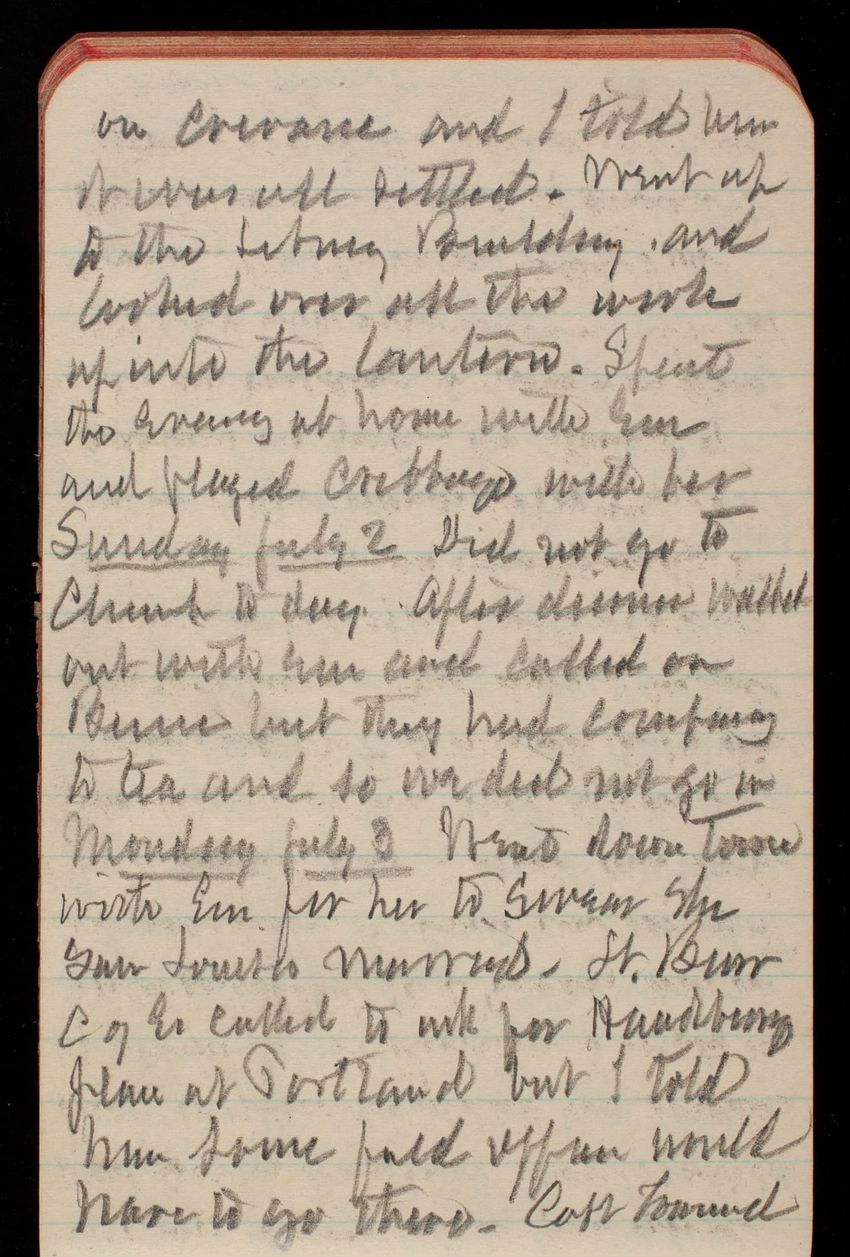 on Crevasse and I told him
it was all settled. Went up
to the Library Building and
looked over all the work
up into the lantern. Spent
the evening at home with Em
and played Cribbage with her
Sunday July 2 Did not go to
Church to day. After dinner walked
out with Em and called on
but they had company
to tea and so we did not go in
Monday July 3 Went down town
with Em for her to swear she
saw married. Lt. Burr
C of Es called to ask for
place at Portland but I told
him some field officer would
have to go there. Capt